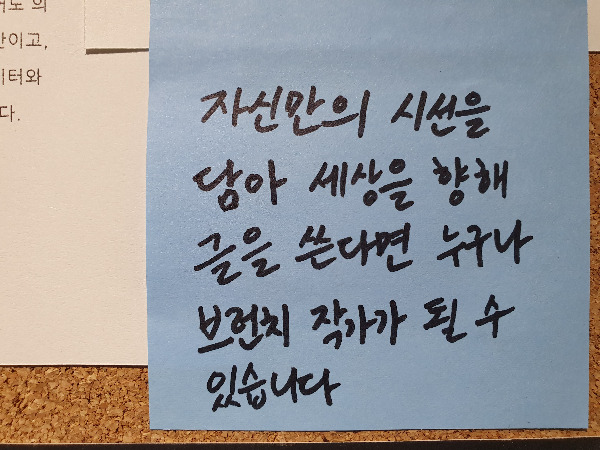 의
이고,
터와
다.
자신만의 시선을
담아 세상을 향해
글을 쓴다면 누구나
브런치 작가가 될 수
있습니다